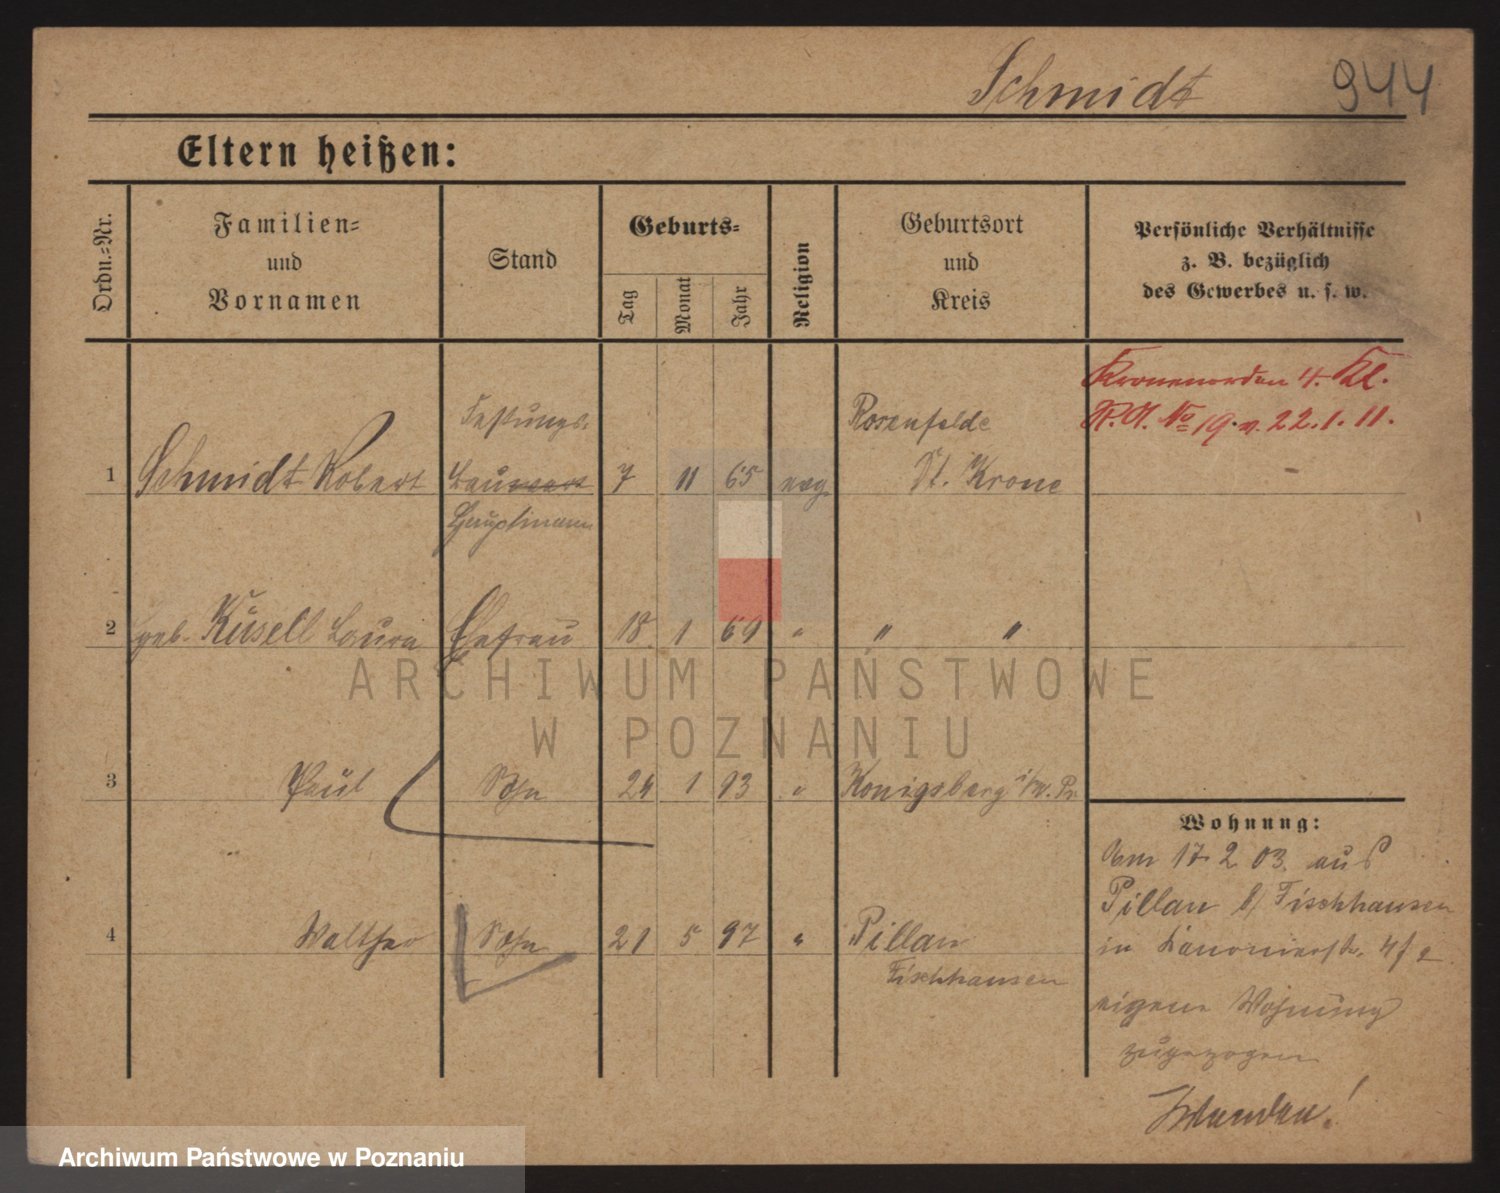 Schmidt 944
Eltern heißen:
Ordn.-Nr.
Familien-
und
Vornamen
Stand
Geburts-
Tag
Monat
Jahr
Religion
Geburtsort
und
Kreis
Persönliche Verhältnisse
z. B. bezüglich
des Gewerbes u. s. w.
Kronenorden 4. Kl.
No 19. v. 22.1.11.
Festungs-
1 Schmidt Robert Bauwart 7 11 65 evg. Rosenfelde
Dt. Krone
Hauptmann
2 geb. Küsell Laura Ehefrau 18 1 69 " " "
3 Paul Sohn 24 1 93 " Königsberg i/w. Pr.
4 Walther Sohn 21 5 97 " Pillau
Fischhausen
Wohnung:
Am 17 2 03. aus
Pillau b/ Fischhausen
in Kanonierstr. 4
eigene Wohnung
zugezogen
ARCHIWUM PAŃSTWOWE
W POZNANIU
Archiwum Państwowe w Poznaniu